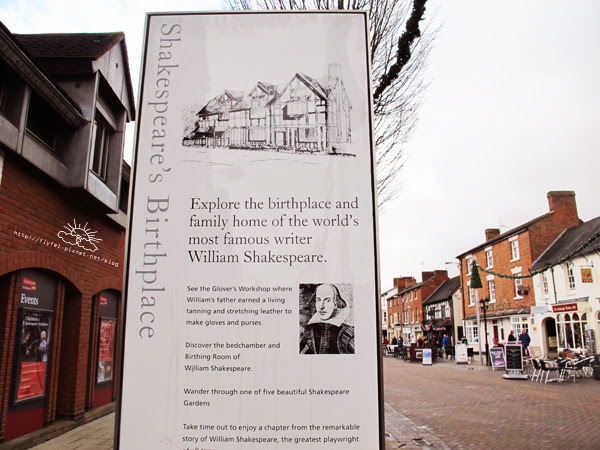 Shakespeare's Birthplace
Explore the birthplace and
family home of the world's
most famous writer
William Shakespeare.
See the Glover's Workshop where
William's father earned a living
tanning and stretching leather to
make gloves and purses.
Discover the bedchamber and
Birthing Room of
William Shakespeare.
Wander through one of five beautiful Shakespeare
Gardens
Take time out to enjoy a chapter from the remarkable
story of William Shakespeare, the greatest playwright
of all time
Events
http://flyfei.pixnet.net/blog